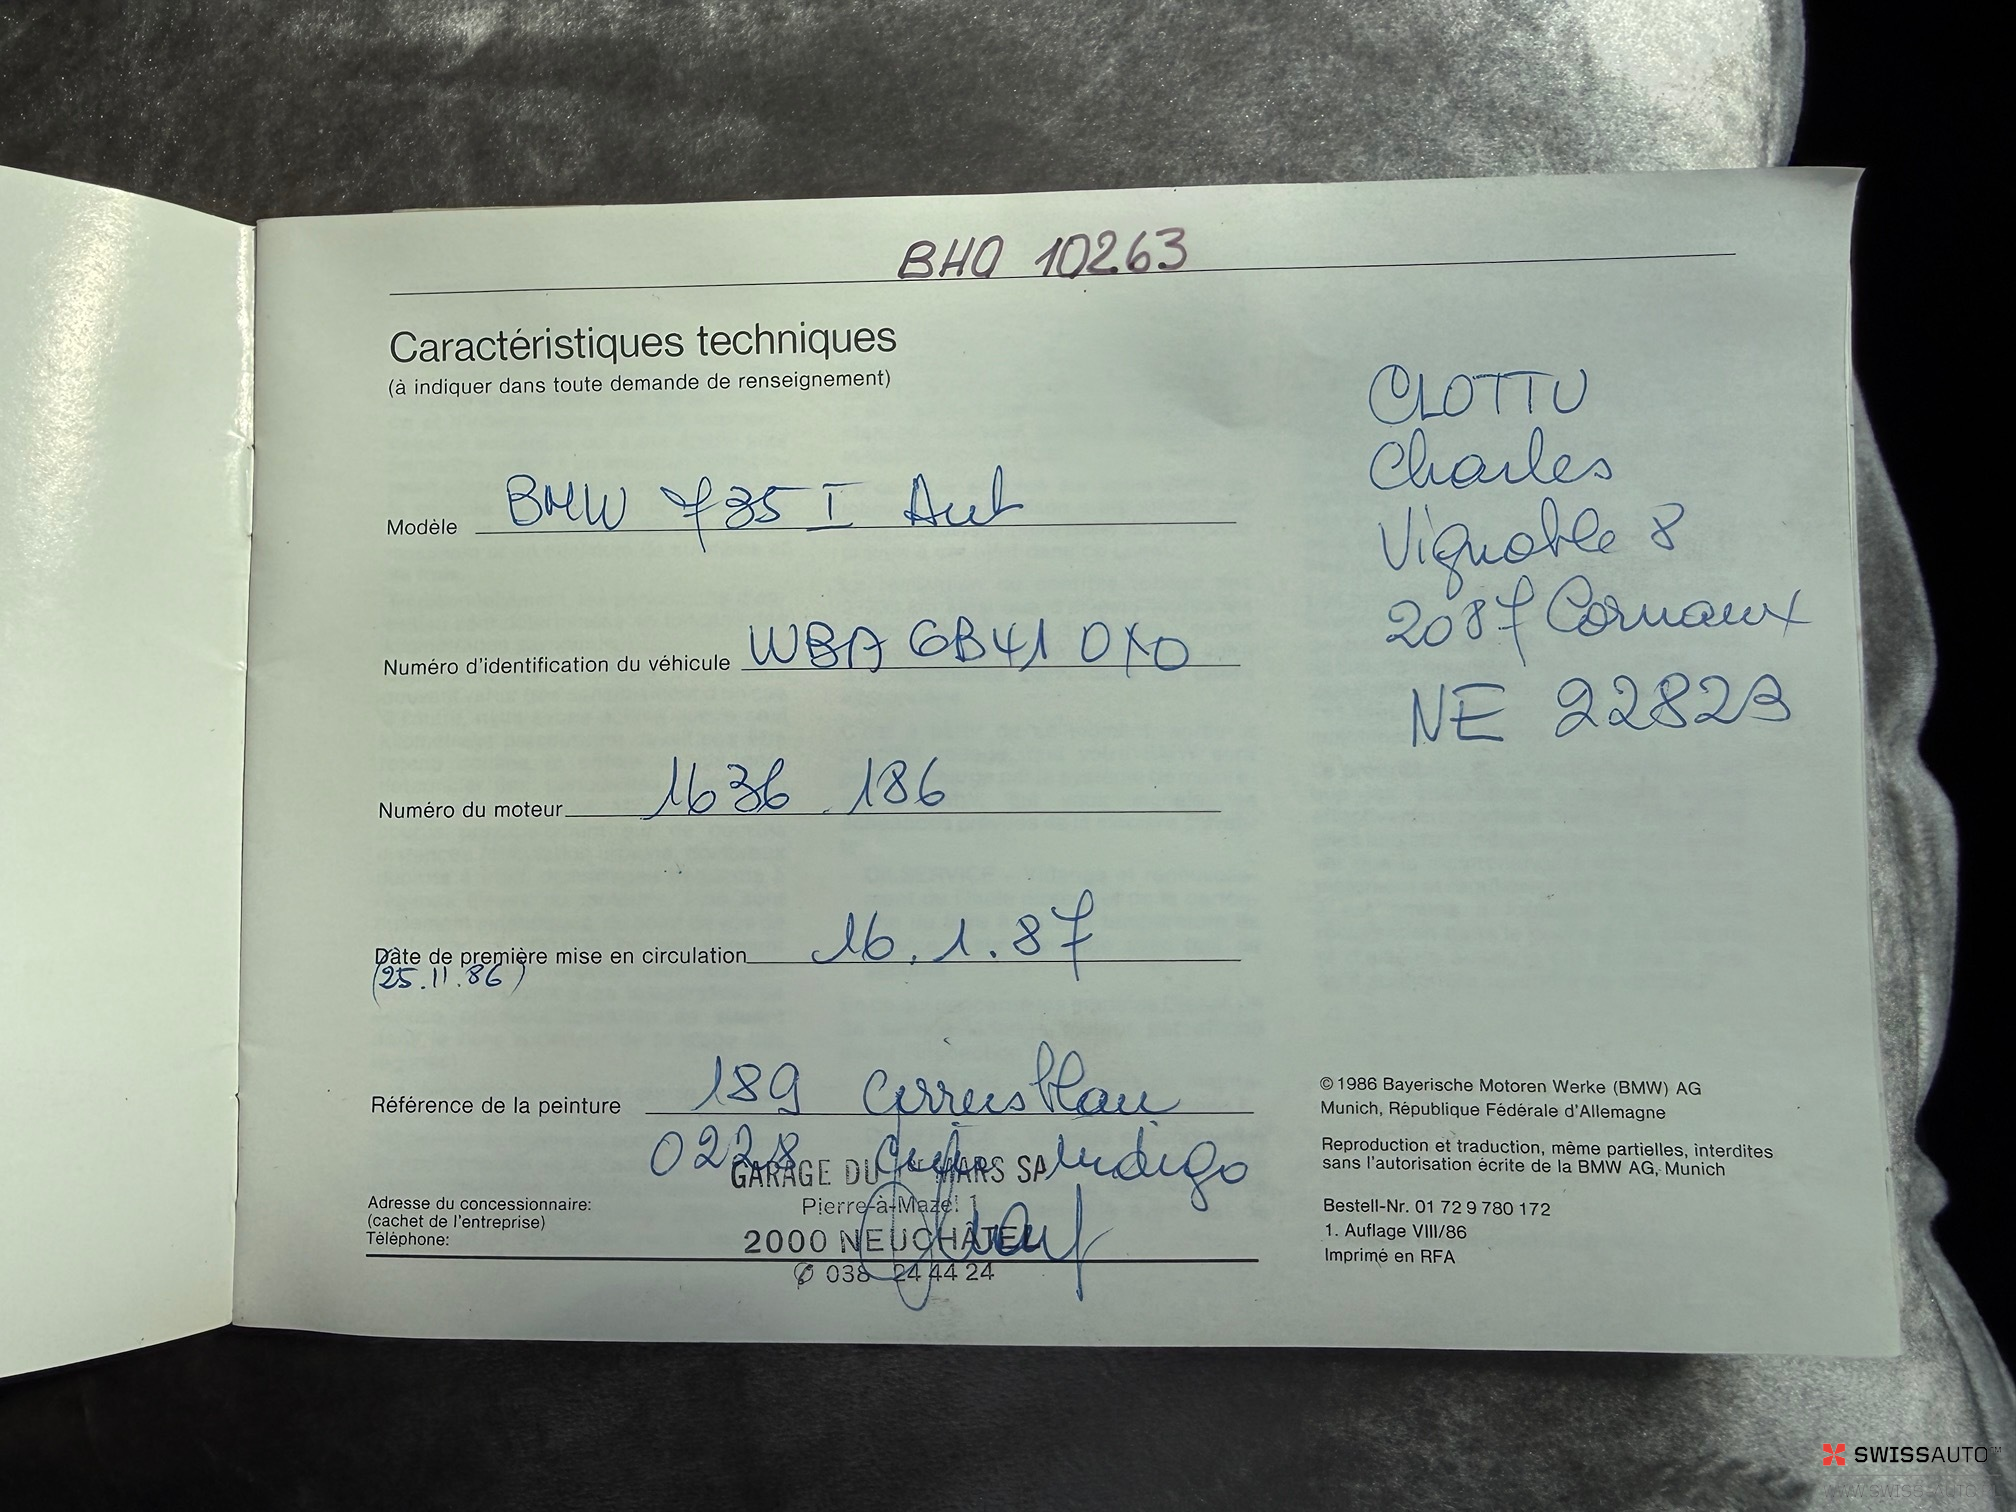 BHO 10263
Caractéristiques techniques
(à indiquer dans toute demande de renseignement)
Modèle BMW 735 I Aut
Numéro d'identification du véhicule WBA GB41 0X0
Numéro du moteur 1636 186
Date de première mise en circulation 16.1.87
(25.11.86)
Référence de la peinture 189 Cirrusblau
0228 cuir Indigo
GARAGE DU 1er MARS SA
Pierre-à-Mazel 1
2000 NEUCHÂTEL
✆ 038 24 44 24
Adresse du concessionnaire:
(cachet de l'entreprise)
Téléphone:
CLOTTU
Charles
Vignoble 8
2087 Cornaux
NE 22823
©1986 Bayerische Motoren Werke (BMW) AG
Munich, République Fédérale d'Allemagne
Reproduction et traduction, même partielles, interdites
sans l'autorisation écrite de la BMW AG, Munich
Bestell-Nr. 01 72 9 780 172
1. Auflage VIII/86
Imprimé en RFA
SWISSAUTO™